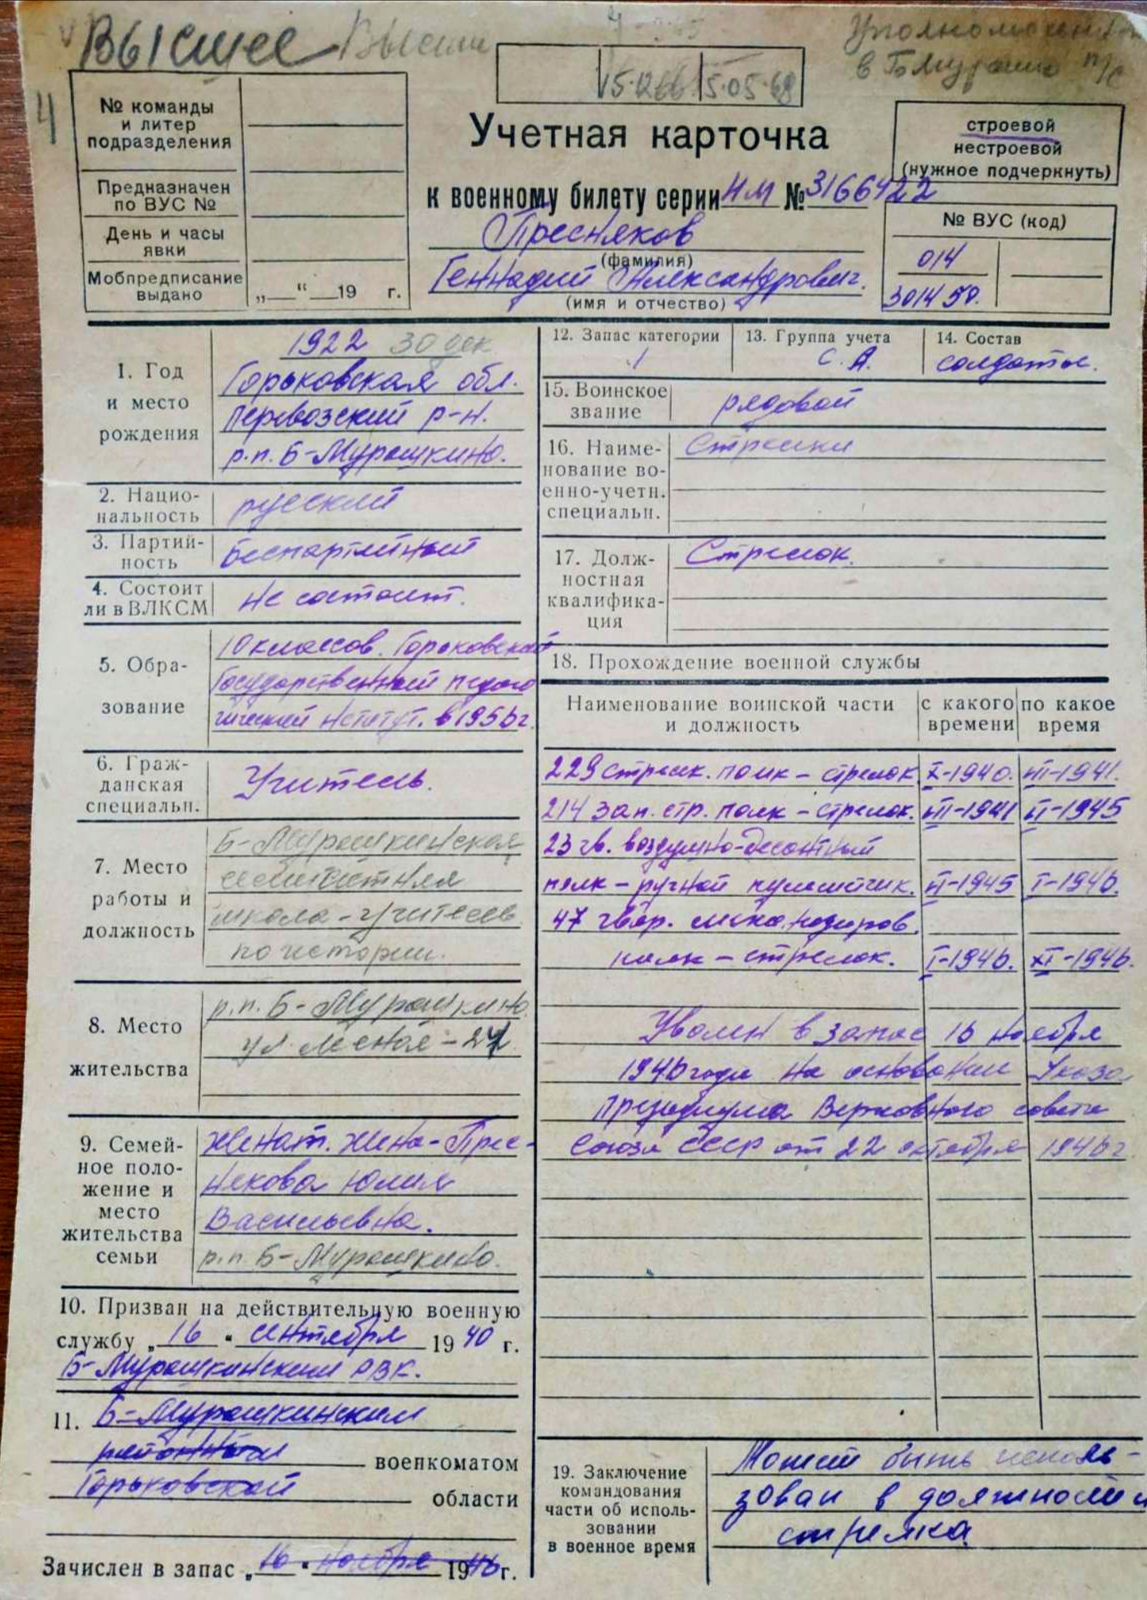 Высшее
Уполномочен
в Б Мурашкино
4
15.12.66 15.05.68
№ команды
и литер
подразделения
Предназначен
по ВУС №
День и часы
явки
Мобпредписание
выдано „__“__19 г.
Учетная карточка
к военному билету серии НМ № 3166422
Пресняков
(фамилия)
Геннадий Александрович.
(имя и отчество)
строевой
нестроевой
(нужное подчеркнуть)
№ ВУС (код)
014
301450.
1. Год
и место
рождения
1922 30 дек
Горьковская обл.
Перевозский р-н.
р.п. Б-Мурашкино.
2. Нацио-
нальность
русский
3. Партий-
ность
Беспартийный
4. Состоит
ли в ВЛКСМ
не состоит.
5. Обра-
зование
10 классов. Горьковский
Государственный педаго
гический нститут. в 1956 г.
6. Граж-
данская
специальн.
Учитель.
7. Место
работы и
должность
Б-Мурашкинская
семилетняя
школа - учитель
по истории.
8. Место
жительства
р.п. Б-Мурашкино
ул. Лесная - 27
9. Семей-
ное поло-
жение и
место
жительства
семьи
Женат. Жена - Прес-
некова Юлия
Васильевна.
р.п. Б-Мурашкино.
10. Призван на действительную военную
службу „16“ сентября 1940 г.
Б-Мурашкинским РВК.
11. Б-Мурашкинским
районным военкоматом
Горьковской области
Зачислен в запас „16“ ноября 1946 г.
12. Запас категории
1
13. Группа учета
С.А.
14. Состав
солдаты.
15. Воинское
звание
рядовой
16. Наиме-
нование во-
енно-учетн.
специальн.
Стрелки
17. Долж-
ностная
квалифика-
ция
Стрелок.
18. Прохождение военной службы
Наименование воинской части
и должность
с какого
времени
по какое
время
229 стрелк. полк - стрелок X-1940. III-1941.
214 зап. стр. полк - стрелок. III-1941 VI-1945
23 гв. воздушно-десантный
полк - ручной пулеметчик. VI-1945 I-1946.
47 гвар. механизиров.
полк - стрелок. I-1946. XI-1946.
Уволен в запас 16 ноября
1946 года на основании Указа
Президиума Верховного совета
Союза СССР от 22 октября 1946 г
19. Заключение
командования
части об исполь-
зовании
в военное время
Может быть исполь-
зован в должности
стрелка